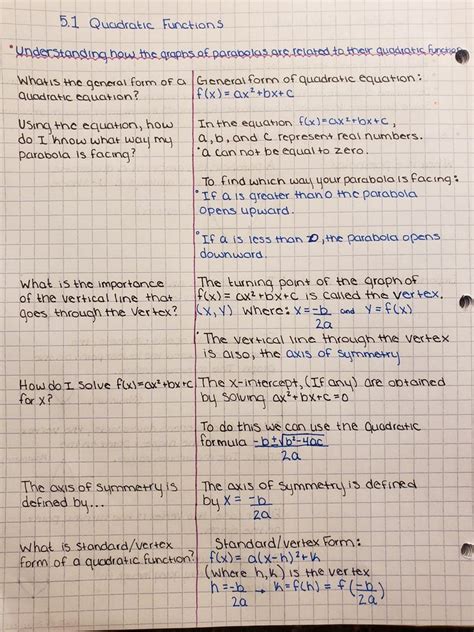 5.1 Quadratic Functions
• Understanding how the graphs of parabolas are related to their quadratic functions
What is the general form of a
quadratic equation?
General form of quadratic equation:
f(x) = ax²+bx+c
Using the equation, how
do I know what way my
parabola is facing?
In the equation f(x)=ax²+bx+c,
a, b, and c represent real numbers.
•a can not be equal to zero.
To find which way your parabola is facing:
• If a is greater than 0 the parabola
opens upward.
• If a is less than 0, the parabola opens
downward.
What is the importance
of the vertical line that
goes through the vertex?
The turning point of the graph of
f(x) = ax²+bx+c is called the vertex.
(x, y) where: x = -b/2a and y = f(x)
• The vertical line through the vertex
is also, the axis of symmetry
How do I solve f(x)=ax²+bx+c
for x?
The x-intercept, (If any) are obtained
by solving ax²+bx+c=0
To do this we can use the Quadratic
formula -b±√b²-4ac/2a
The axis of symmetry is
defined by...
The axis of symmetry is defined
by x = -b/2a
What is standard/vertex
form of a quadratic function?
Standard/vertex Form:
f(x) = a(x-h)²+k
(where h,k) is the vertex
h = -b/2a → k = f(h) = f(-b/2a)